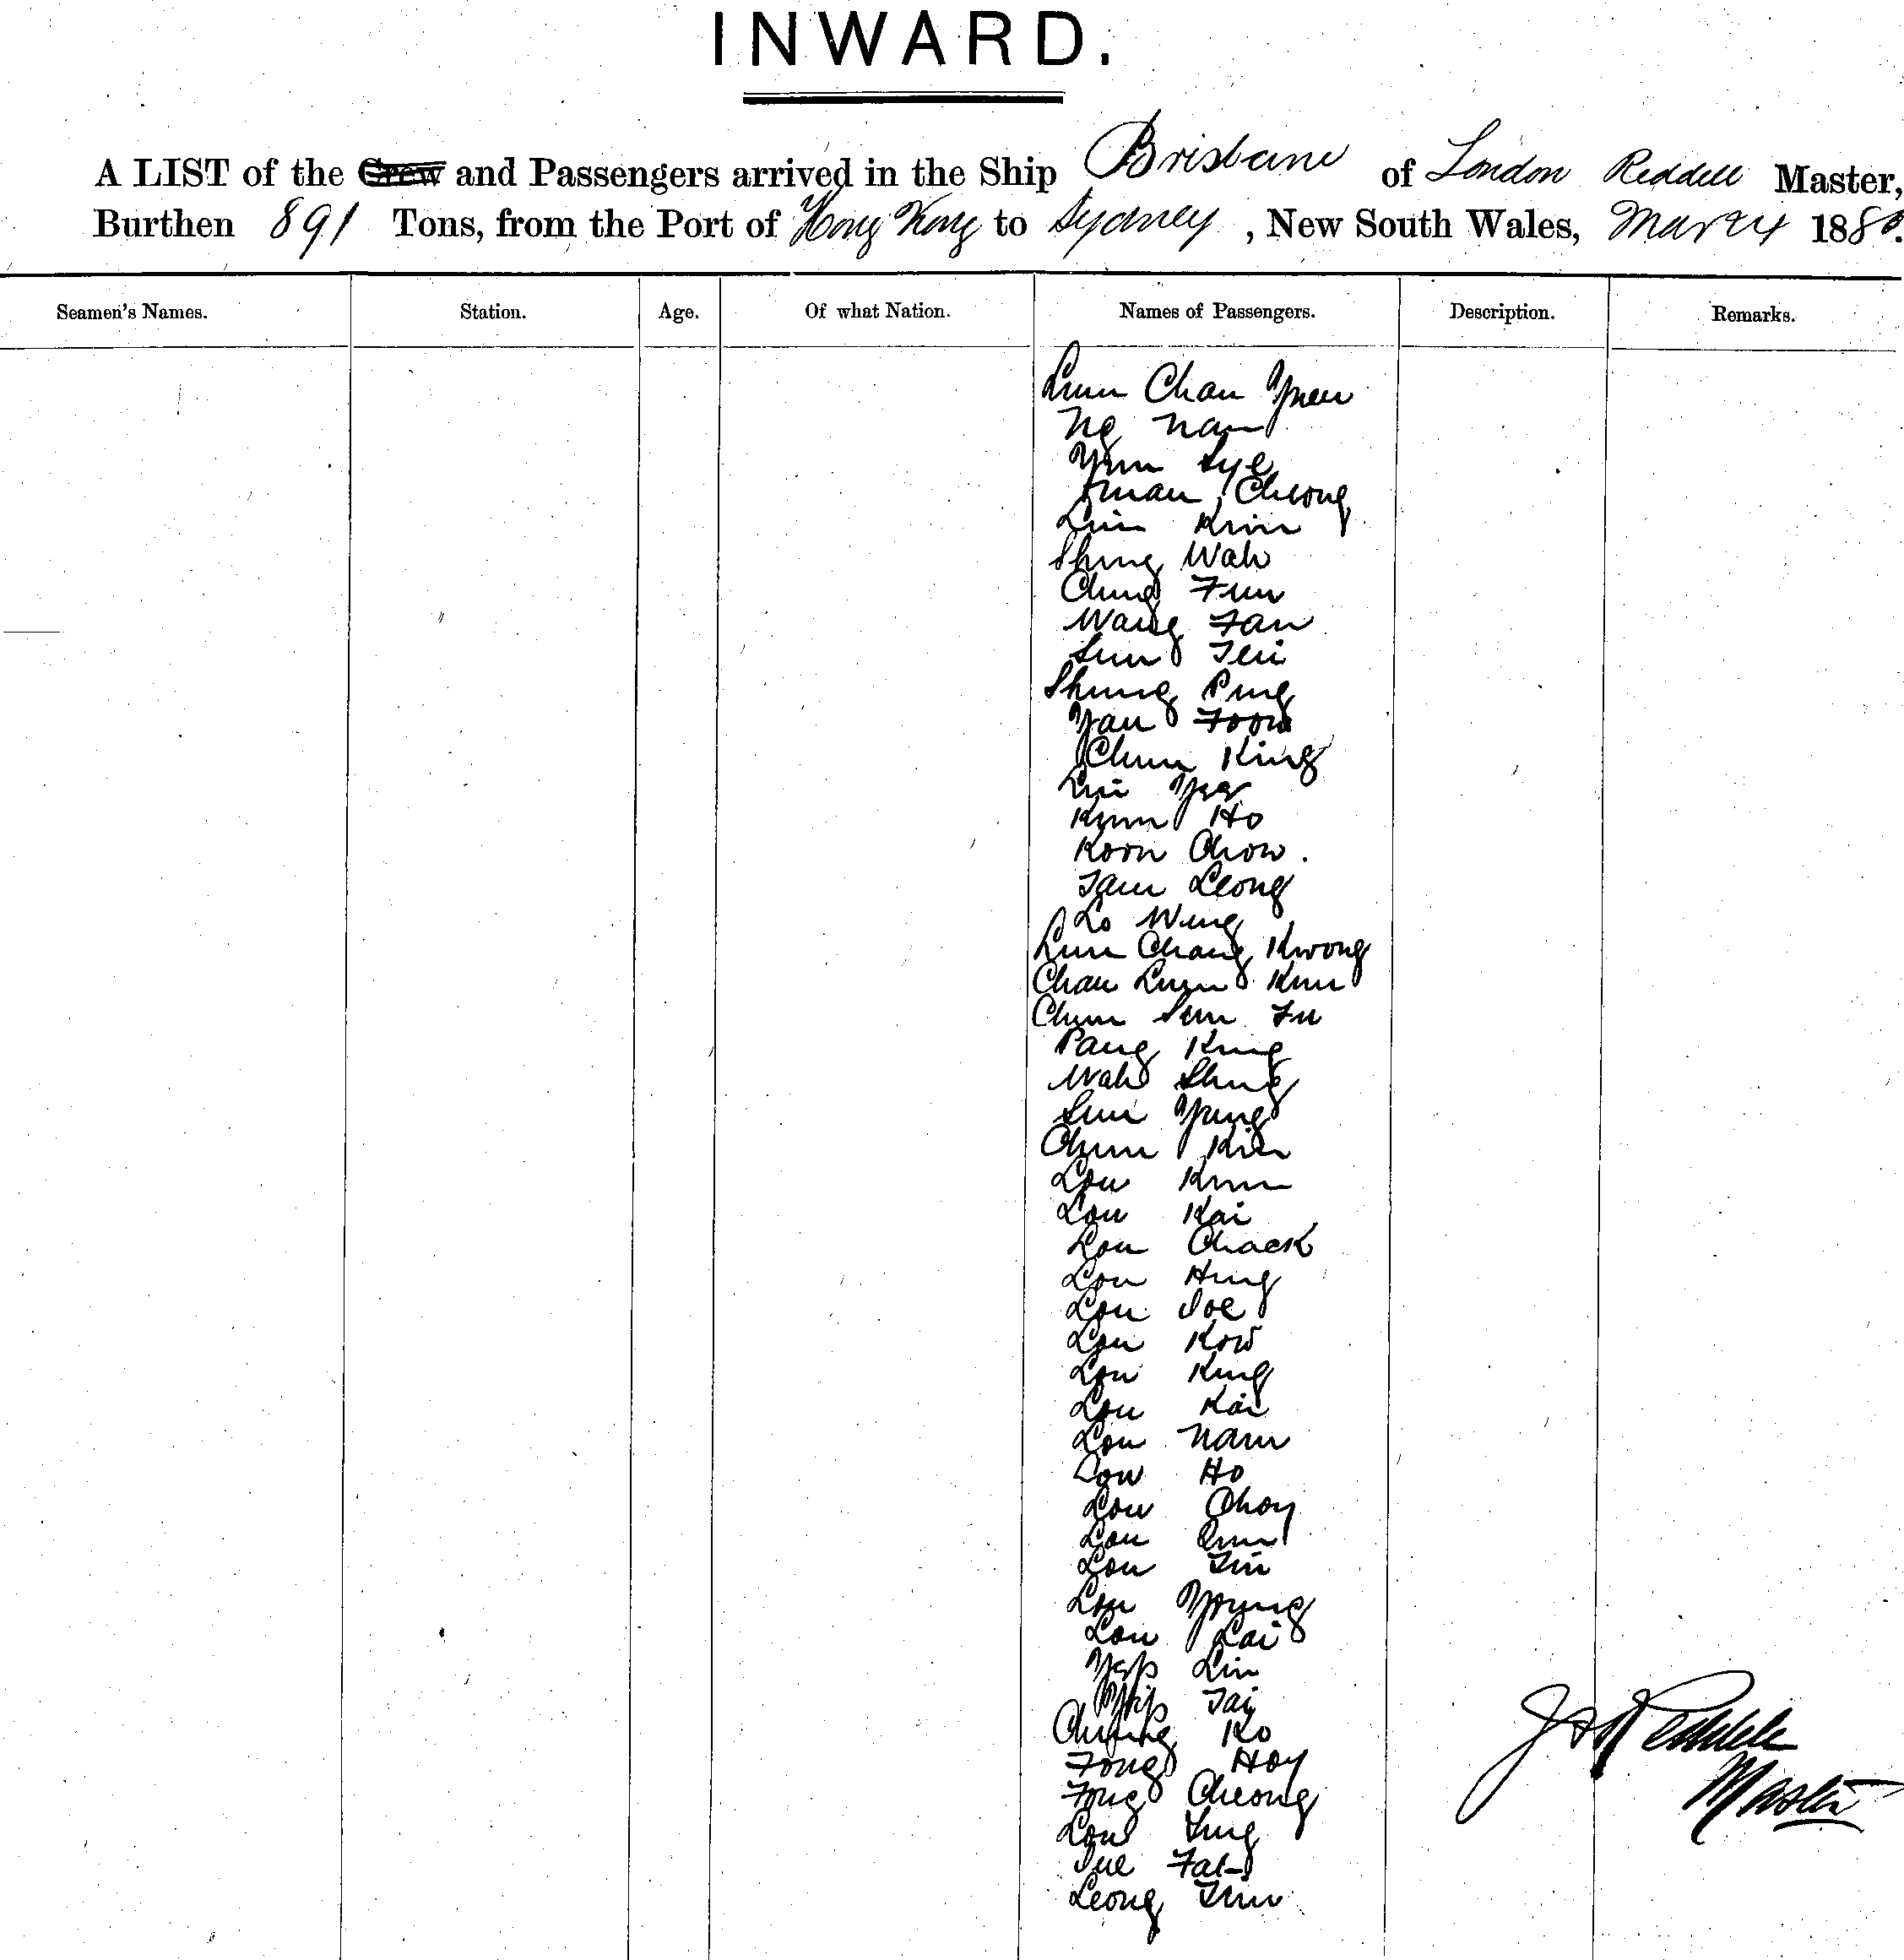 INWARD.
A LIST of the Crew and Passengers arrived in the Ship Brisbane of London Reddell Master,
Burthen 891 Tons, from the Port of Hong Kong to Sydney, New South Wales, 1880.
Seamen's Names. Station. Age. Of what Nation. Names of Passengers. Description. Remarks.
Chan
Ng Nam
Yun Sye
Cheong
Kim
Shing Wah
Ching Fun
Wang Fan
Sun
Shung Ping
Yau Foow
Chun King
Yee
Ho
Koon Chow.
Tam Leong
Lo Wing
Lum Chang Kwong
Chan Kum
Chun Sun Fu
Pang King
Wah Shing
Sun Yung
Chun Kin
Lou Kum
Lou Kai
Lou Chack
Lou Hing
Lou Joe
Lou Kow
Lou King
Lou Kai
Lou Nam
Low Ho
Lou Choy
Lou
Lou Tin
Lou Young
Lou Lai
Yep Lin
Yip Tai
Chung Ko
Fong Hoy
Fong Cheong
Lou Sing
Sue Fat
Leong
Reddell
Master